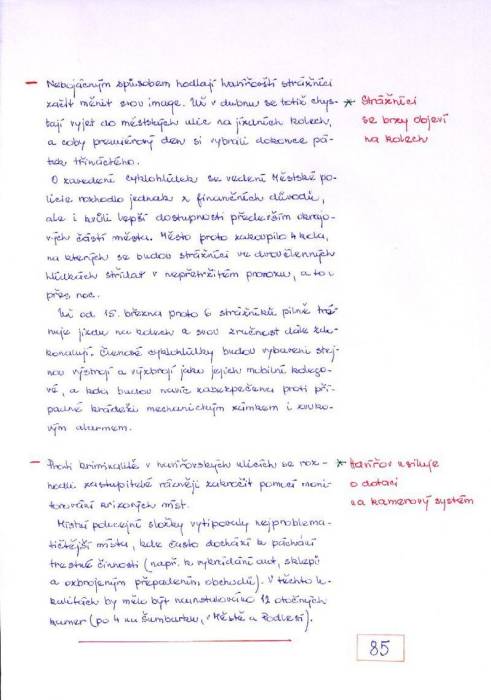 Nebojácným způsobem hodlají havířovští strážníci
začít měnit svou image. Už v dubnu se totiž chys-
tají vyjet do městských ulic na jízdních kolech,
a coby premiérový den si vybrali dokonce pá-
tek třináctého.
Strážníci
se brzy objeví
na kolech
O zavedení cyklohlídek se vedení Městské po-
licie rozhodlo jednak z finančních důvodů,
ale i kvůli lepší dostupnosti především okrajo-
vých částí města. Město proto zakoupilo 4 kola,
na kterých se budou strážníci ve dvoučlenných
hlídkách střídat v nepřetržitém provozu, a to i
přes noc.
Už od 15. března proto 6 strážníků pilně tré-
nuje jízdu na kolech a svou zručnost dále zdo-
konalují. Členové cyklohlídky budou vybaveni stej-
nou výstrojí a výzbrojí jako jejich mobilní kolego-
vé, a kola budou navíc zabezpečena proti pří-
padné krádeži mechanickým zámkem i zvuko-
vým alarmem.
Proti kriminalitě v havířovských ulicích se roz-
hodli zastupitelé rázněji zakročit pomocí moni-
torování rizikových míst.
Havířov usiluje
o dotaci
na kamerový systém
Místní policejní složky vytipovaly nejproblema-
tičtější místa, kde často dochází k páchání
trestné činnosti (např. k vykrádání aut, sklepů
a ozbrojeným přepadením obchodů). V těchto lo-
kalitách by mělo být nainstalováno 12 otočných
kamer (po 4 na Šumbarku, v Městě a Podlesí).
85